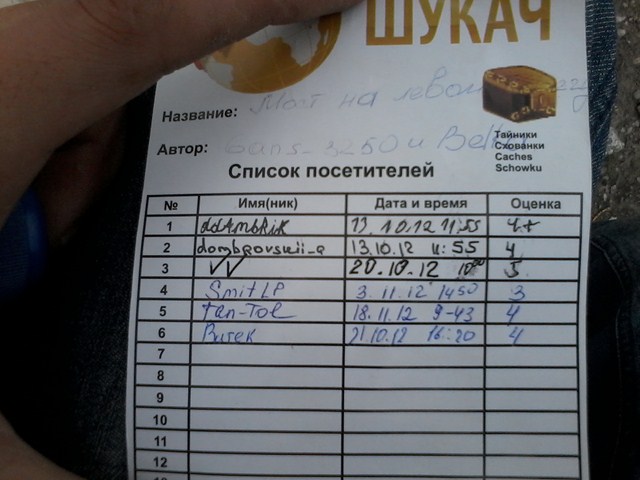 ШУКАЧ
Название: Мост на левом
Автор:
Тайники
Схованки
Caches
Schowku
Список посетителей
№ Имя(ник) Дата и время Оценка
1 ddAmbRiK 13.10.12 11:55 4+
2 dombrovskii-a 13.10.12 11:55 4
3 VV 20.10.12 5
4 SmitLP 3.11.12 1450 3
5 Tan-Tol 18.11.12 9-43 4
6 Витек 21.10.12 16:20 4
7
8
9
10
11
12